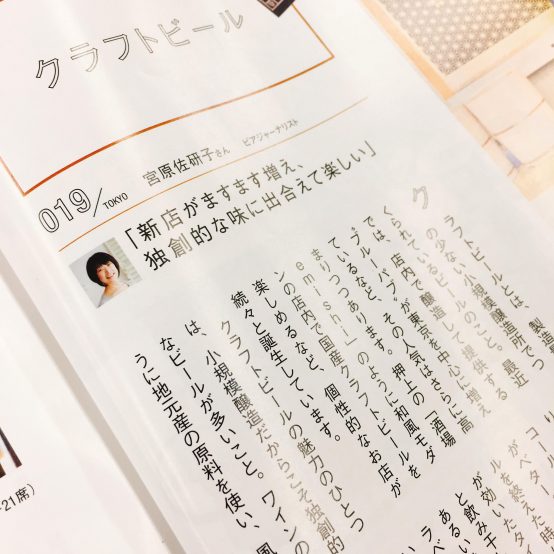 クラフトビール
019/TOKYO
宮原佐研子さん ビアジャーナリスト
「新店がますます増え、
独創的な味に出合えて楽しい」
クラフトビールとは、製造
の少ない小規模醸造所でつ
くられているビールのこと。最近
では、店内で醸造して提供する
“ブルーパブ”が東京を中心に増え
ているなど、その人気はさらに高
まりつつあります。押上の「酒場
emishi」のように和風モダ
ンの店内で国産クラフトビールを
楽しめるなど、個性的なお店が
続々と誕生しています。
クラフトビールの魅力のひとつ
は、小規模醸造だからこそ独創的
なビールが多いこと。ワインの
うに地元産の原料を使い、風
がベター
ルを終えた時
が効いたタイ
と飲み干
ある
ラベ
21席)